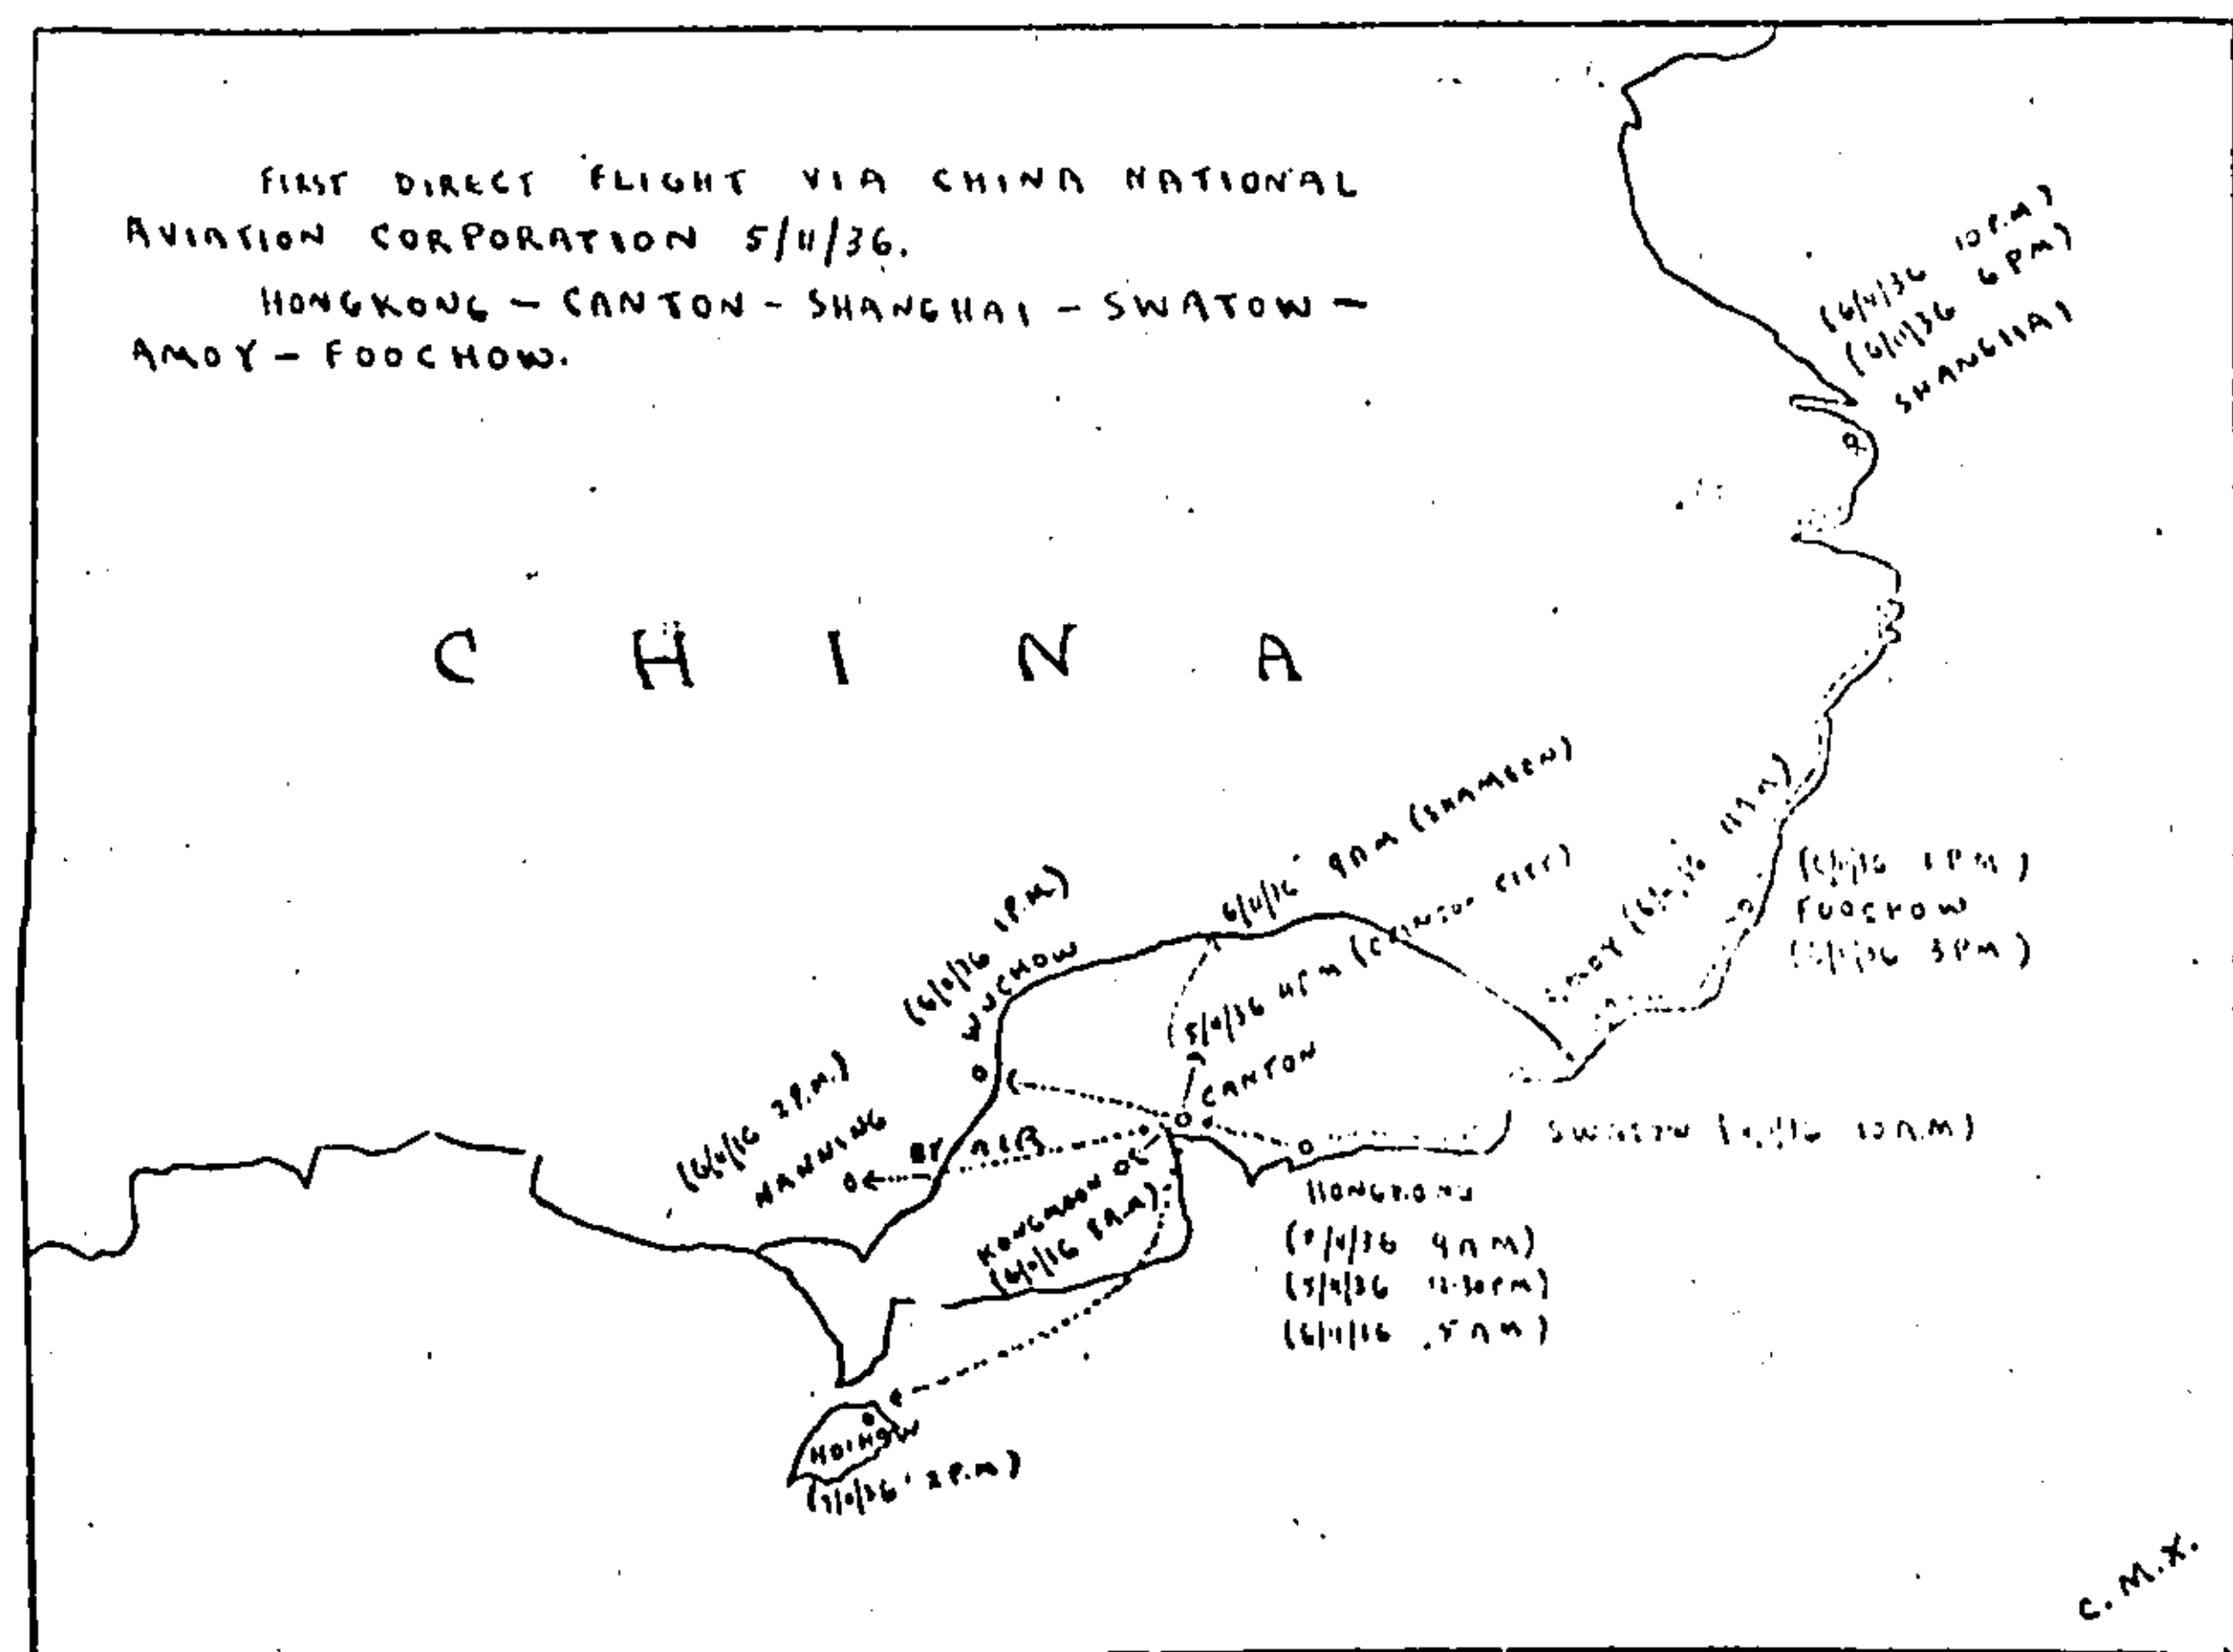 FIRST DIRECT FLIGHT VIA CHINA NATIONAL
AVIATION CORPORATION 5/11/36.
HONGKONG - CANTON - SHANGHAI - SWATOW -
AMOY - FOOCHOW.
(6/11/36 6 PM)
SHANGHAI
CHINA
6/11/36 9 AM (SHAMEEN)
(5/11/36 4 PM (CANTON CITY)
CANTON
(6/11/36 1 P.M)
WUCHOW
(6/11/36 2 P.M.)
NANNING
BY AIR
KONGMOON
(6/11/36 8 AM)
AMOY
1 PM)
FOOCHOW
3 PM)
SWATOW
10 AM)
HONGKONG
9 AM)
(5/11/36 12.30 PM)
(6/11/36 5 AM)
HOIHOW
2 P.M)
C.M.X.